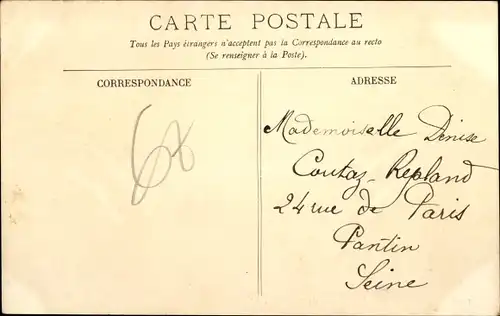 CARTE POSTALE
Tous les Pays étrangers n'acceptent pas la Correspondance au recto
(Se renseigner à la Poste).
CORRESPONDANCE
ADRESSE
68
Mademoiselle Denise
Coutaz-Repland
24 rue de Paris
Pantin
Seine